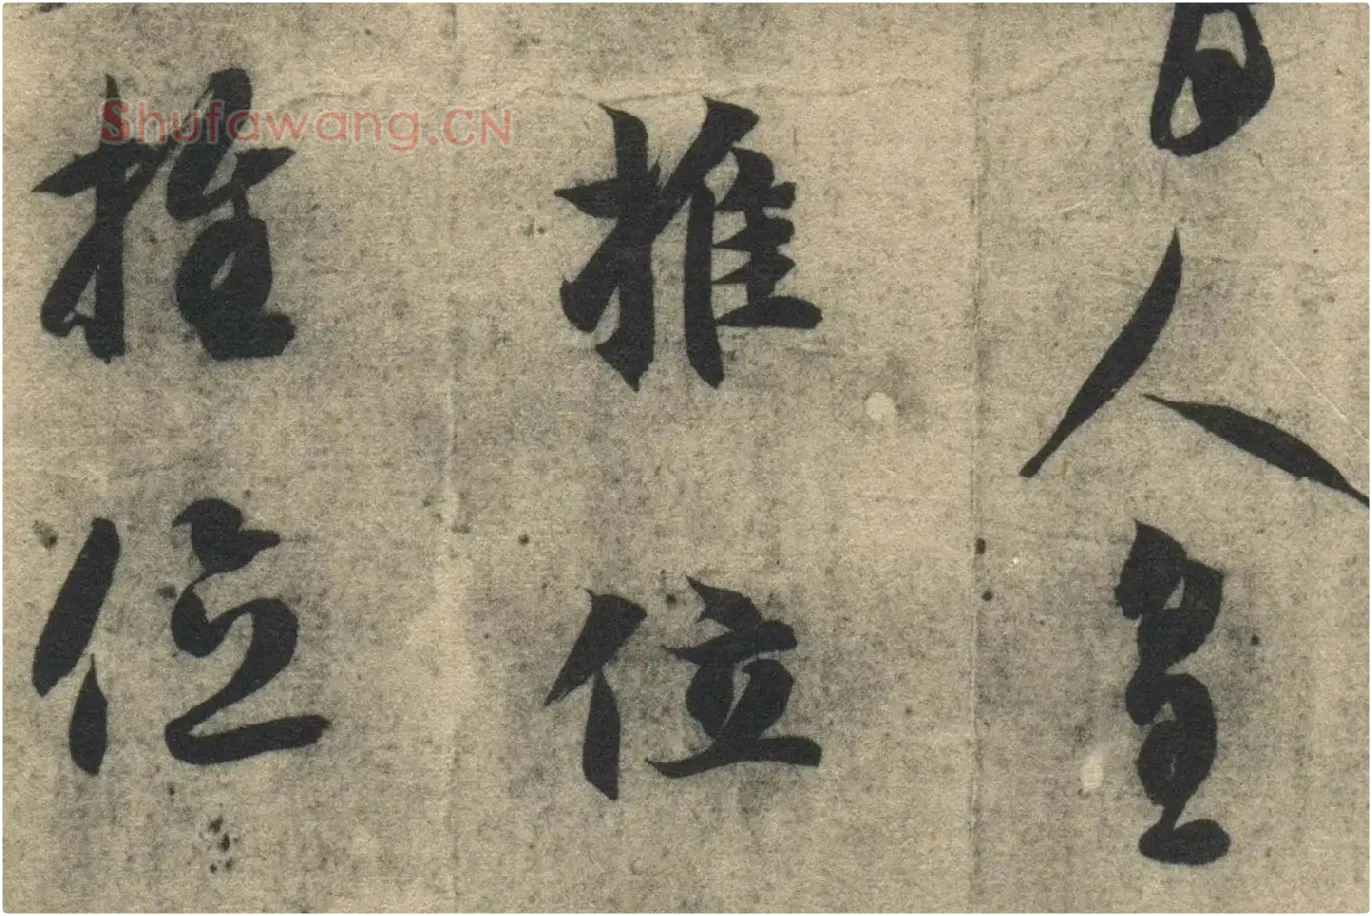 人皇
推位
推位
Shufawang.CN